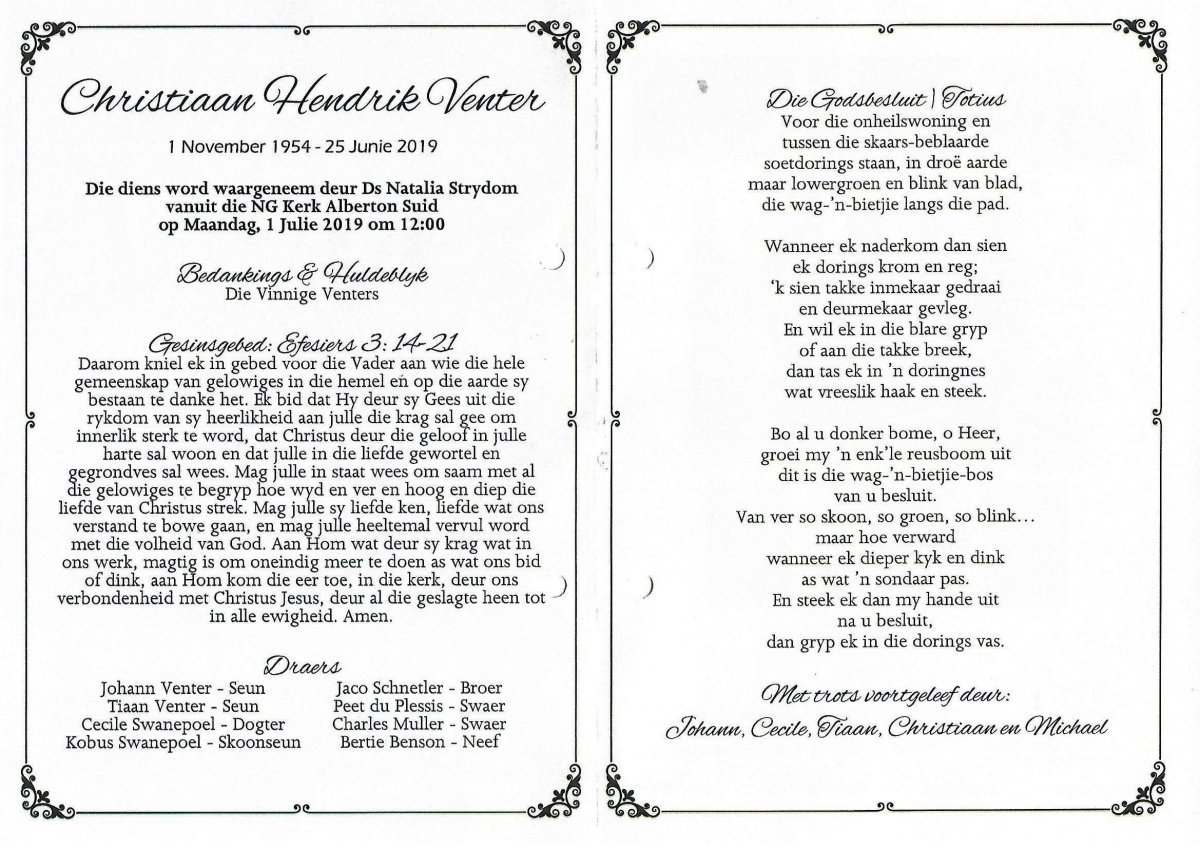 Christiaan Hendrik Venter
1 November 1954 - 25 Junie 2019
Die diens word waargeneem deur Ds Natalia Strydom
vanuit die NG Kerk Alberton Suid
op Maandag, 1 Julie 2019 om 12:00
Bedankings & Huldeblyk
Die Vinnige Venters
Gesinsgebed: Efesiers 3: 14-21
Daarom kniel ek in gebed voor die Vader aan wie die hele
gemeenskap van gelowiges in die hemel en op die aarde sy
bestaan te danke het. Ek bid dat Hy deur sy Gees uit die
rykdom van sy heerlikheid aan julle die krag sal gee om
innerlik sterk te word, dat Christus deur die geloof in julle
harte sal woon en dat julle in die liefde gewortel en
gegrondves sal wees. Mag julle in staat wees om saam met al
die gelowiges te begryp hoe wyd en ver en hoog en diep die
liefde van Christus strek. Mag julle sy liefde ken, liefde wat ons
verstand te bowe gaan, en mag julle heeltemal vervul word
met die volheid van God. Aan Hom wat deur sy krag wat in
ons werk, magtig is om oneindig meer te doen as wat ons bid
of dink, aan Hom kom die eer toe, in die kerk, deur ons
verbondenheid met Christus Jesus, deur al die geslagte heen tot
in alle ewigheid. Amen.
Draers
Johann Venter - Seun
Tiaan Venter - Seun
Cecile Swanepoel - Dogter
Kobus Swanepoel - Skoonseun
Jaco Schnetler - Broer
Peet du Plessis - Swaer
Charles Muller - Swaer
Bertie Benson - Neef
Die Godsbesluit | Totius
Voor die onheilswoning en
tussen die skaars-beblaarde
soetdorings staan, in droë aarde
maar lowergroen en blink van blad,
die wag-'n-bietjie langs die pad.
Wanneer ek naderkom dan sien
ek dorings krom en reg;
'k sien takke inmekaar gedraai
en deurmekaar gevleg.
En wil ek in die blare gryp
of aan die takke breek,
dan tas ek in 'n doringnes
wat vreeslik haak en steek.
Bo al u donker bome, o Heer,
groei my 'n enk'le reusboom uit
dit is die wag-'n-bietjie-bos
van u besluit.
Van ver so skoon, so groen, so blink...
maar hoe verward
wanneer ek dieper kyk en dink
as wat 'n sondaar pas.
En steek ek dan my hande uit
na u besluit,
dan gryp ek in die dorings vas.
Met trots voortgeleef deur:
Johann, Cecile, Tiaan, Christiaan en Michael